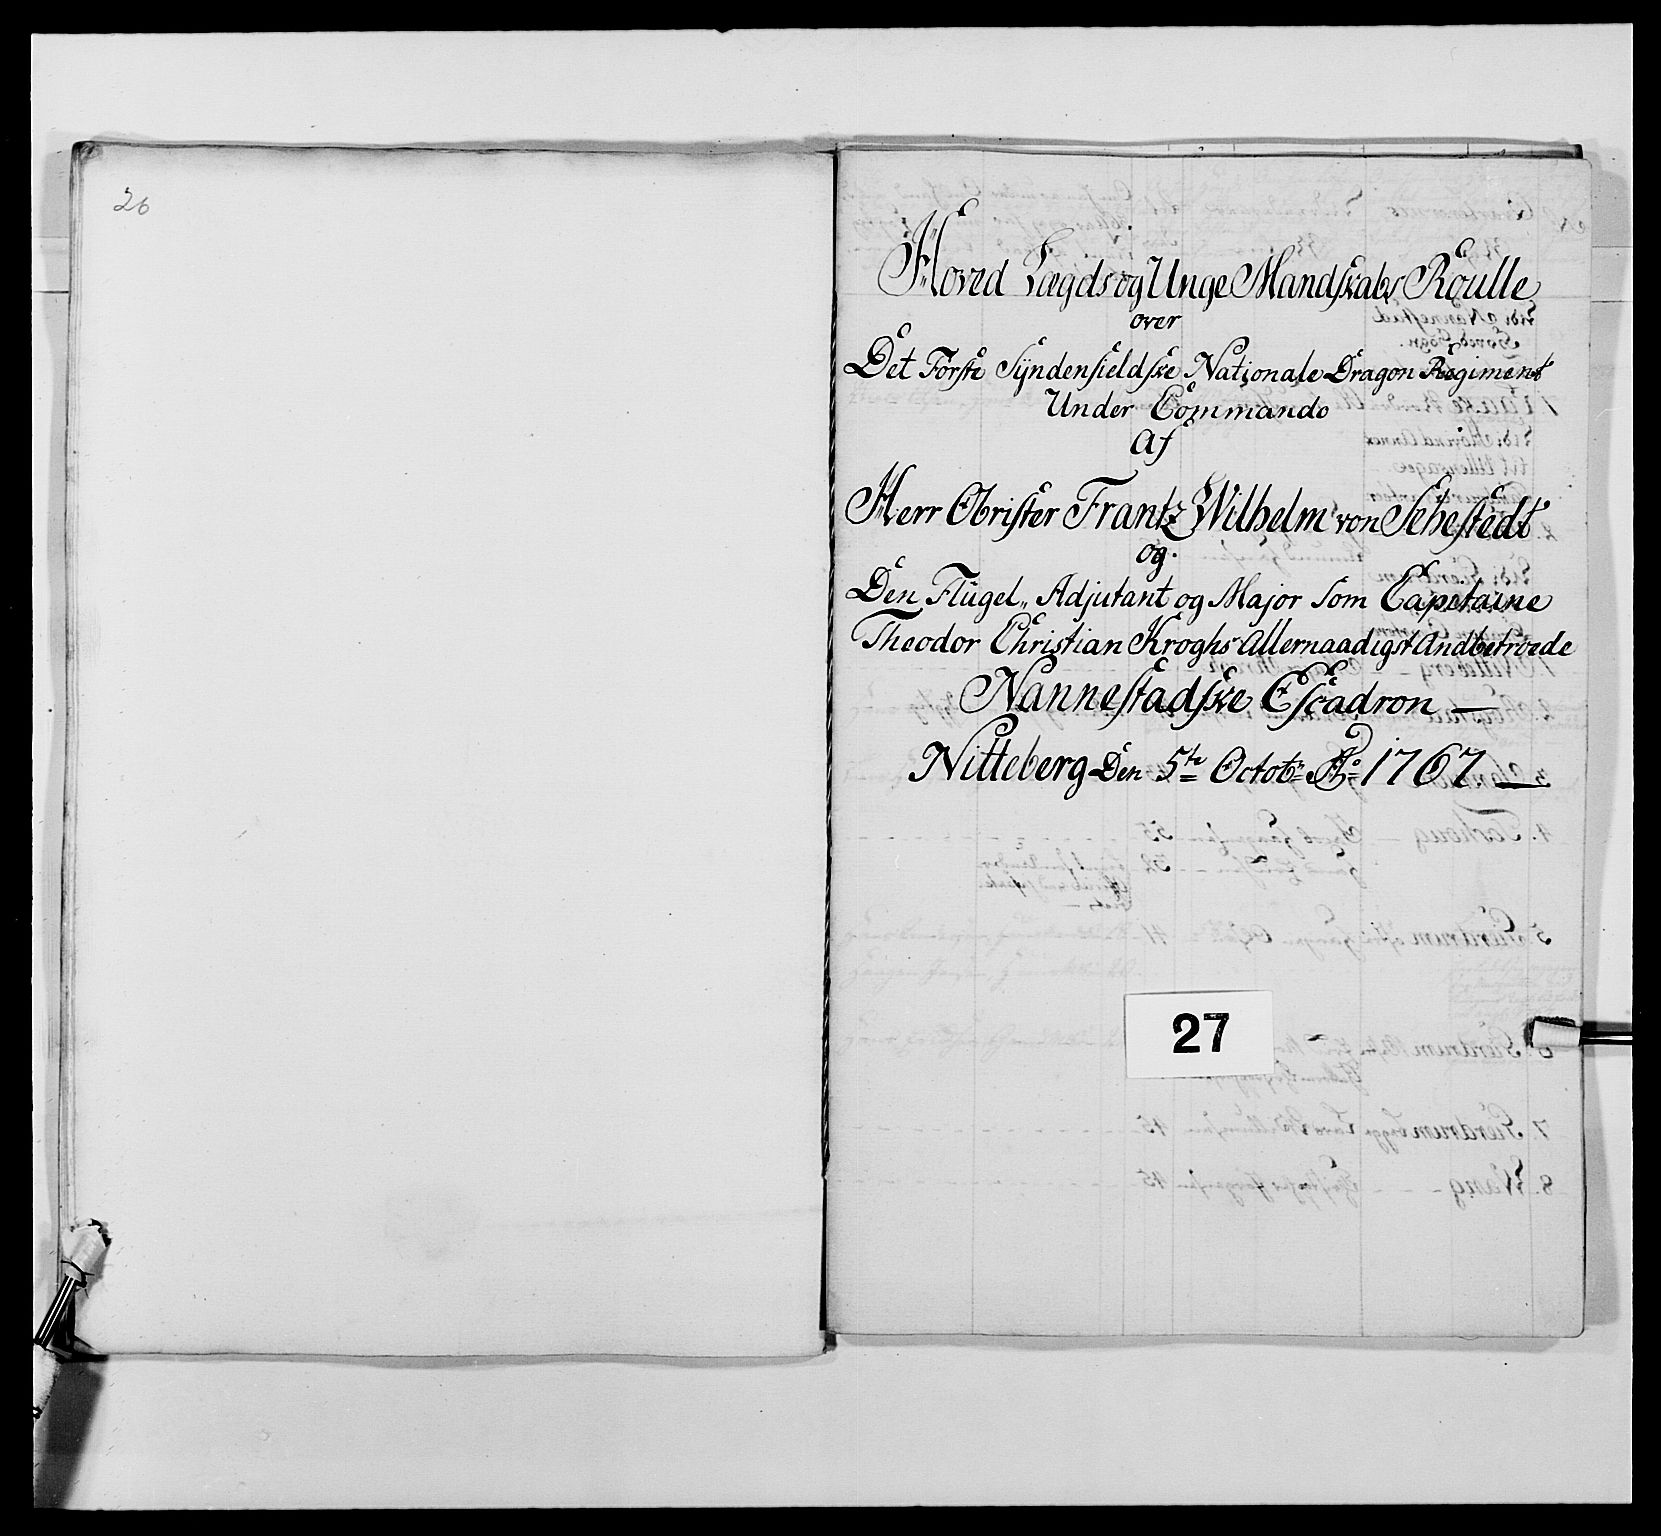 26
Hoved Lægds og Unge Mandskabs Roulle
over
Det Første Syndenfieldske Nationale Dragon Regiment
Under Commando
af
Herr Obrister Frantz Wilhelm von Sehestedt
og
Den Flügel„ Adjutant og Major som Capitaine
Theodor Christian Kroghs Allernaadigst Andbetroede
Nannestadske Escadron —
Nitteberg Den 5te Octobr Ao 1767. —
27